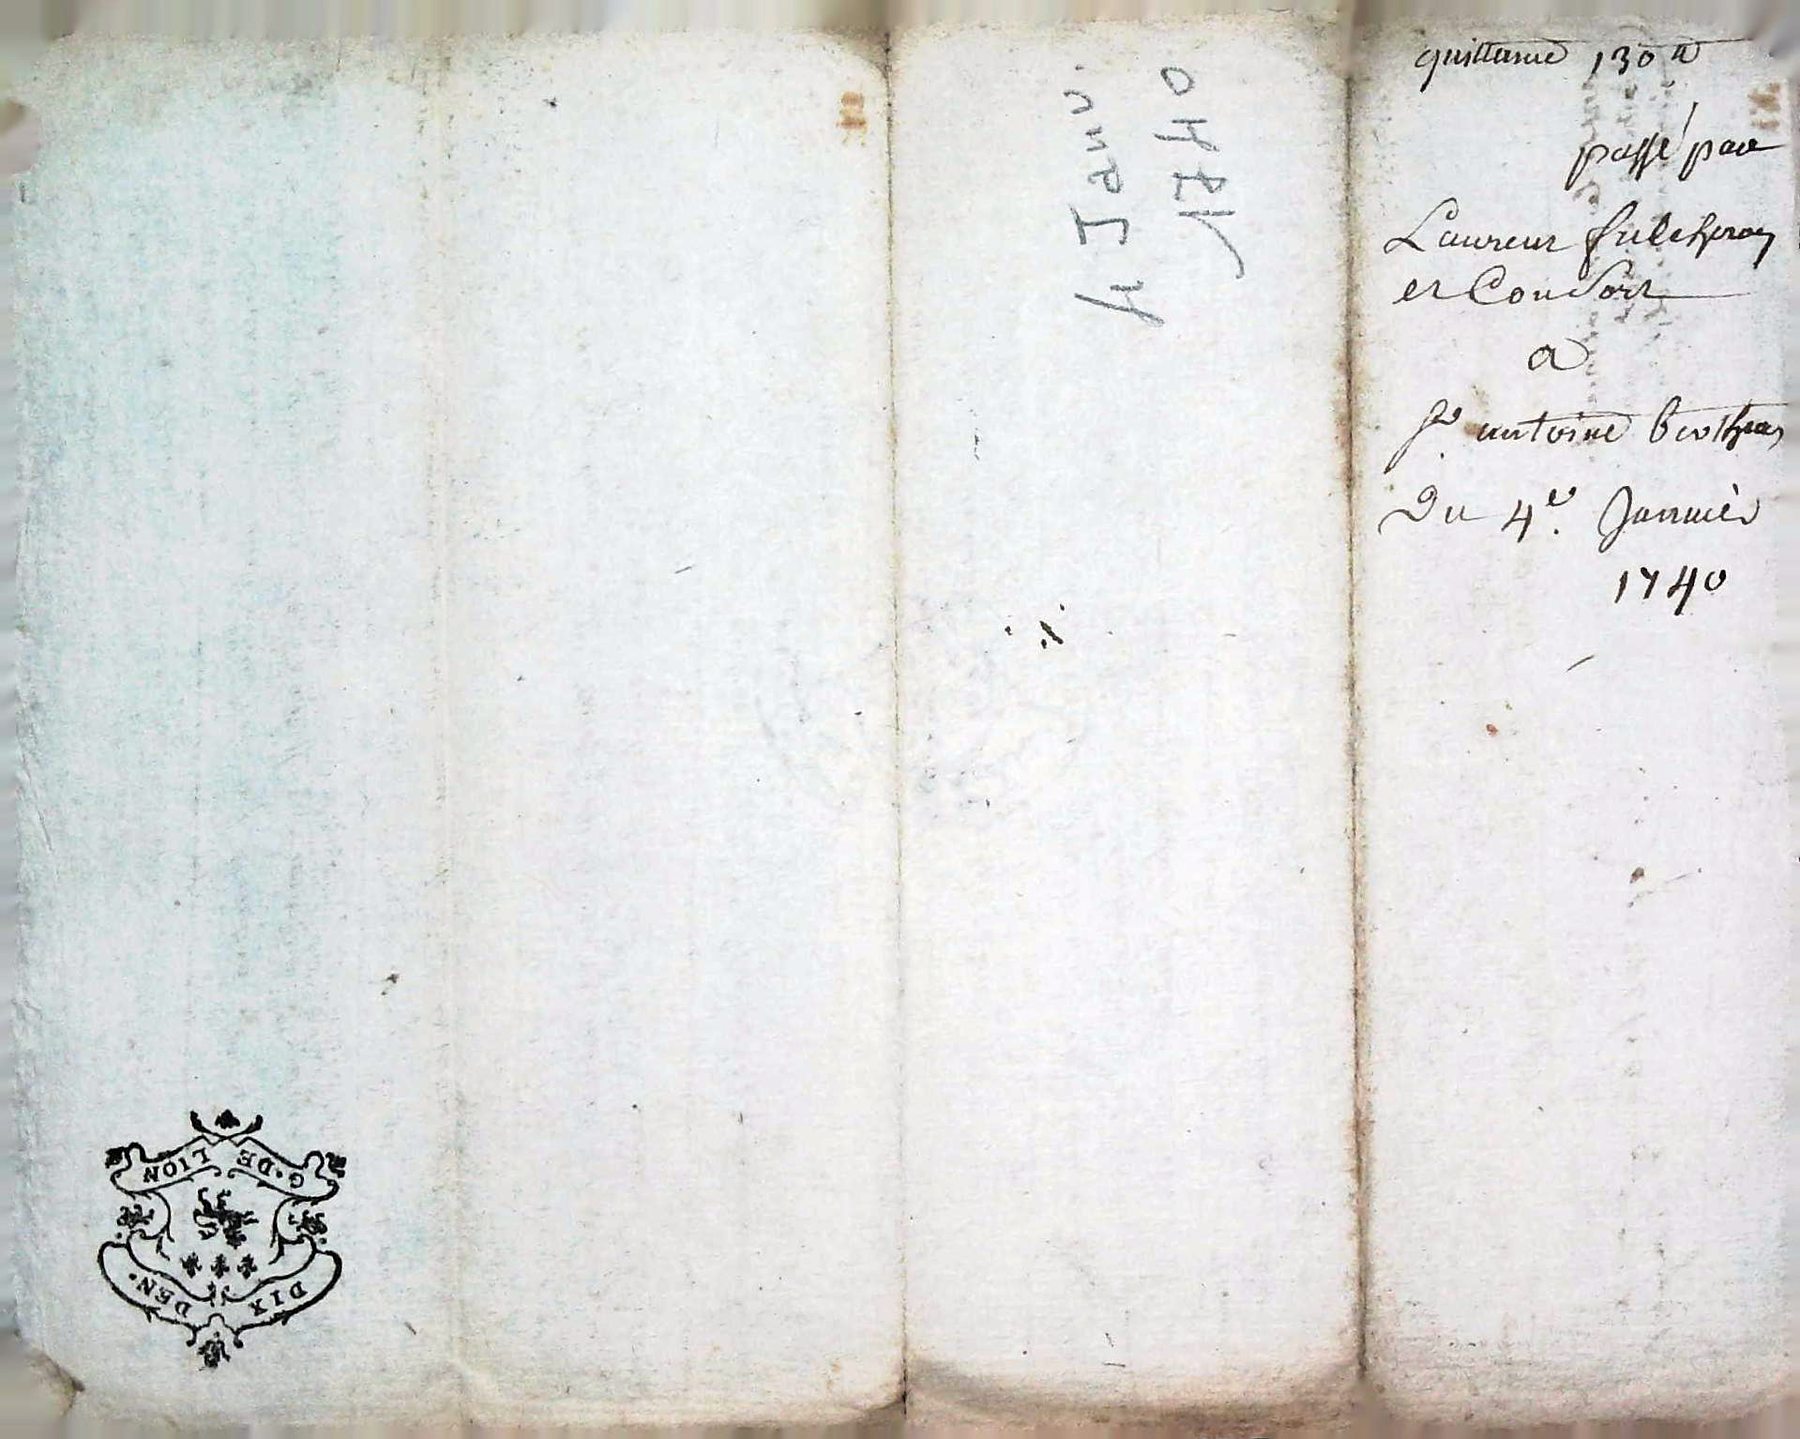 quittance 130 ₶
passé par
Laurent fulchiron
et Consort
a
Sr antoine berthier
Du 4e. Janvier
1740
4 Janv.
1740
G. DE LION
DIX DEN.